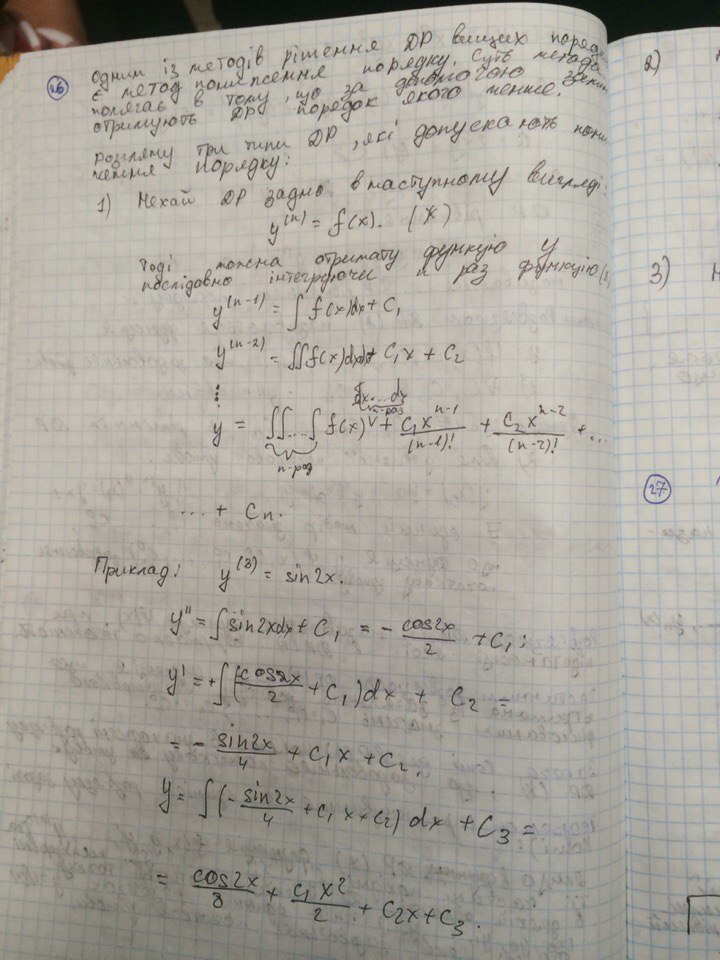 26
Одним із методів рішення ДР вищих порядків
є метод пониження порядку. Суть методу
полягає в тому, що за допомогою заміни
отримують ДР порядок якого менше.
Розгляну три типи ДР, які допускають пони
ження порядку:
1) Нехай ДР задано в наступному вигляді:
y^(n) = f(x). (*)
Тоді можна отримату функцію y
послідовно інтегруючи n раз функцію
y^(n-1) = ∫ f(x)dx + C₁
y^(n-2) = ∫∫ f(x)dxdx + C₁x + C₂
⋮
dx...dx
n-раз
y = ∫∫...∫ f(x) + C₁x^(n-1)/(n-1)! + C₂x^(n-2)/(n-2)! + ...
n-раз
... + Cn.
Приклад: y^(3) = sin2x.
y'' = ∫ sin2xdx + C₁ = - cos2x/2 + C₁;
y' = + ∫ (-cos2x/2 + C₁)dx + C₂ =
= - sin2x/4 + C₁x + C₂.
y = ∫ (- sin2x/4 + C₁x + C₂) dx + C₃ =
= cos2x/8 + C₁x²/2 + C₂x + C₃.
2)
3)
27